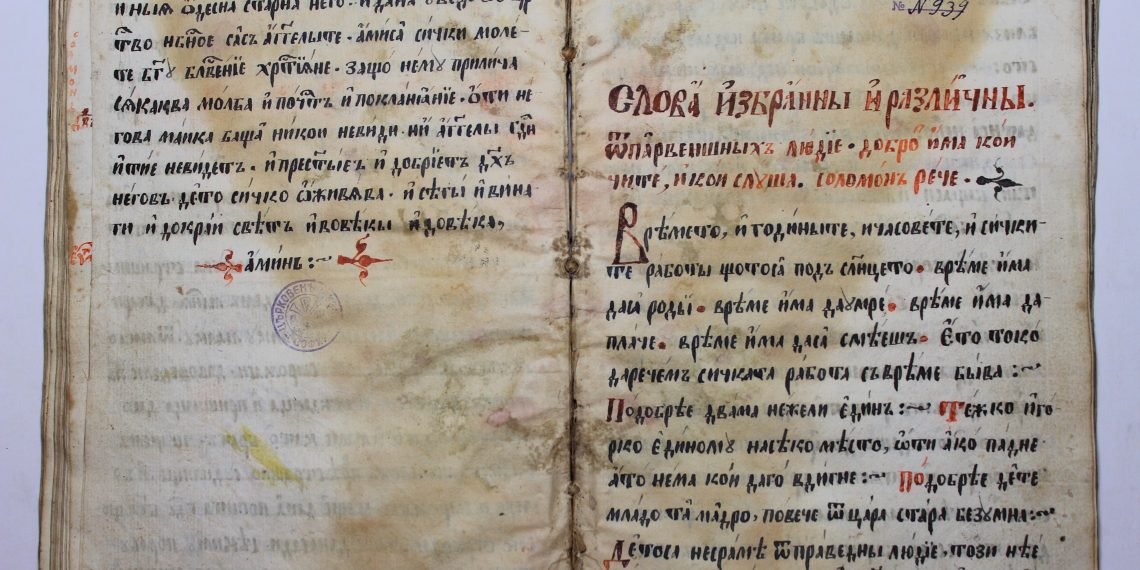 и ныѧ ѿдесна старна него. и дана
тво нб҃ное сасъ а҆гг҃елыте. а҆миса сички моле-
те бг҃у блг҃веніе хрⷭ҇тіѧне. защо нему прилича
сѧкаква молба и҆ почⷭ҇тъ и҆ покланꙗніе. ѿти не
гова маика баща никои невиди. ни а҆гг҃елы
и҆тіе невидетъ. и҆прес҃тые҆ и҆ добріетъ дх҃ъ
неговъ. дето сичко ѡ҆живѧва. и҆ се҃ты и҆ вина
ги и҆ докраи свѣтъ и҆вовѣкы и҆довѣка,
а҆минь:~
№ N 939
Слова и҆збранны и҆ различны.
ѿпарвешныхъ людїе. добро и҆ма кои
чите, и҆ кои слуша. соломонъ рече.
Врѣмето, и҆ годиныте, и҆часовете, и҆ сички-
те работы щотоса подъ слн҃цето. врѣме и҆ма
даса роды. врѣме и҆ма даумре. врѣме и҆ма да-
плаче. врѣме и҆ма даса смѣешъ. Е҆то токо
даречемъ сичката работа съврѣме быва:~
Подобрѣе двама нежели е҆динъ:~ Тежко и҆ го
рко е҆диному насѣко мѣсто, ѿти а҆ко падне
а҆то нема кои даго вдигне:~ Подобрѣе дете
младо та мадро, повече ѿ цара стара безумна:~
Детоса несрамѣ ѿ праведны людїе. този нѣе